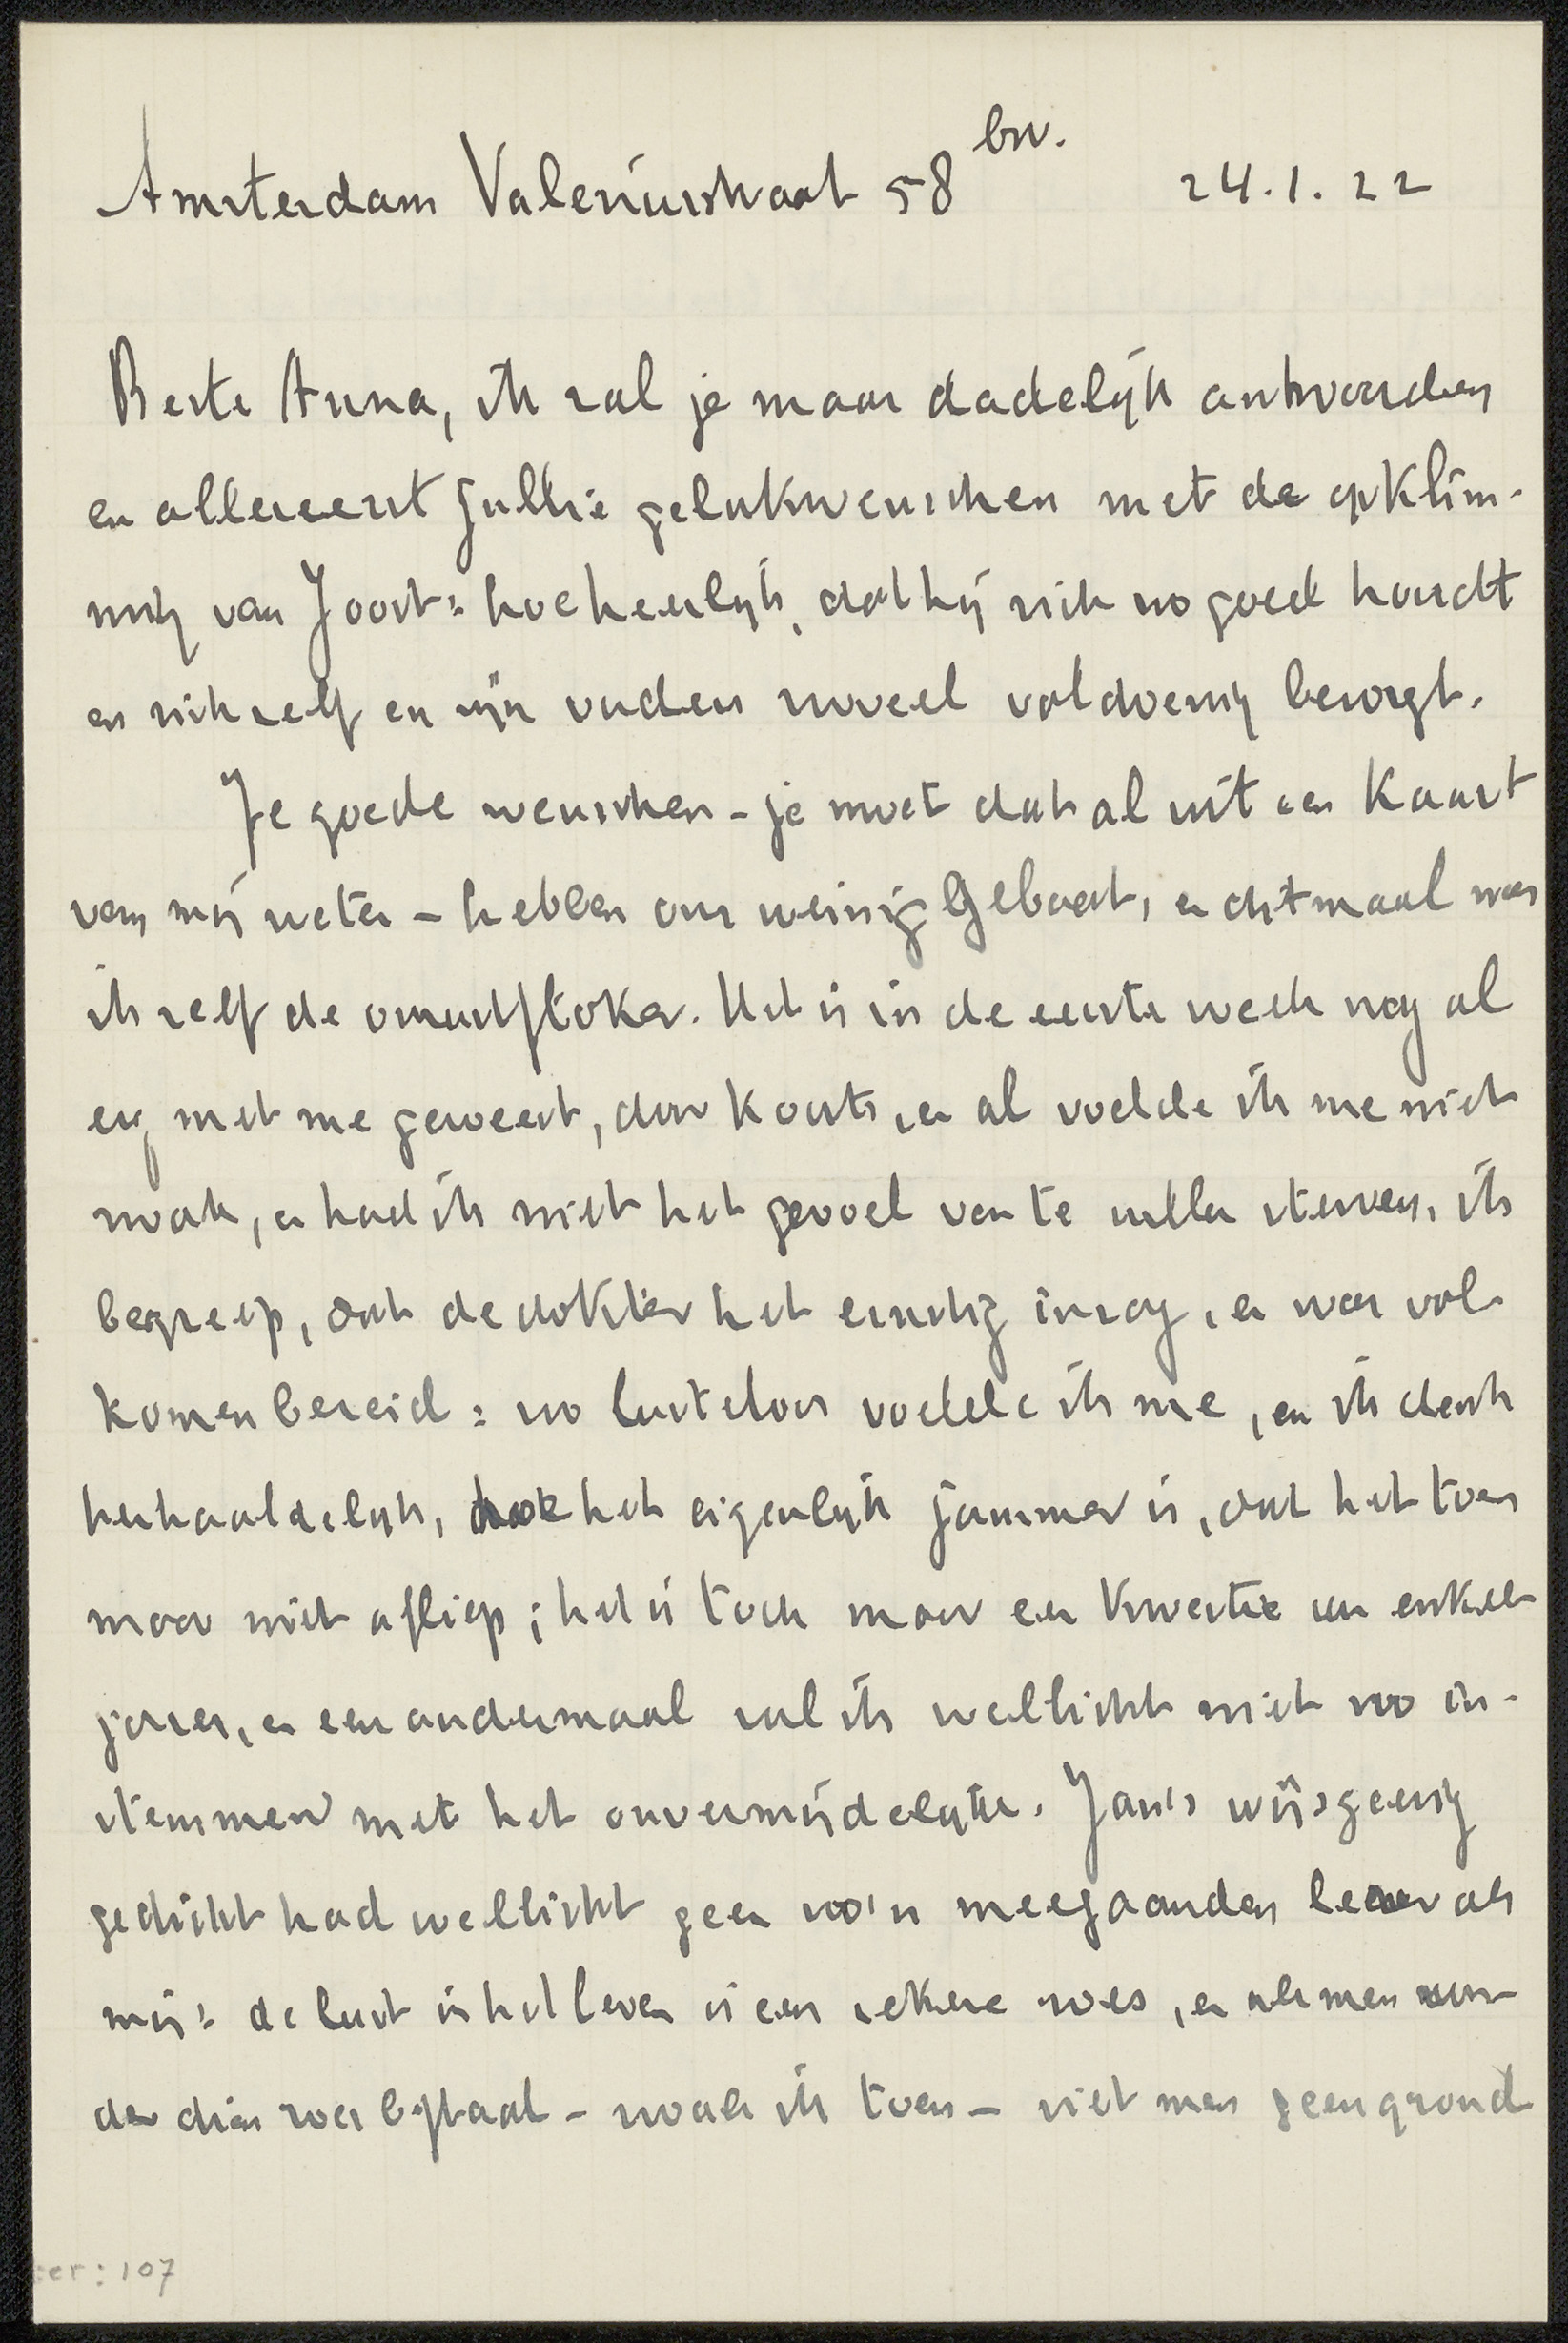 Amsterdam Valeriusstraat 58 bv. 24.1.22
Beste Anna, ik zal je maar dadelijk antwoorden
en allereerst jullie gelukwenschen met de opklim-
ming van Joost: hoe heerlijk, dat hij zich zo goed houdt
en zichzelf en zijn ouders zoveel voldoening bezorgt.
Je goede wenschen - je moet dat al uit een kaart
van mij weten - hebben ons weinig gebaat, en ditmaal was
ik zelf de onrustſtoker. Het is in de eerste week nog al
erg met me geweest, door koorts, en al voelde ik me niet
zwak, en had ik niet het gevoel van te zullen sterven, ik
begreep, dat de dokter het ernstig inzag, en was vol-
komen bereid: zo lusteloos voelde ik me, en ik dacht
herhaaldelijk, hoe het eigenlijk jammer is, dat het toen
maar niet afliep; het is toch maar een kwestie van enkele
jaren, en een andermaal zal ik wellicht niet zo in-
stemmen met het onvermijdelijke. Jan's wijsgeerig
gedicht had wellicht geen zo'n meegaanden lezer als
mij: de lust in het leven is een zekere roes, en als men zon-
der dien roes bestaat - zoals ik toen - ziet men geen grond
er: 107